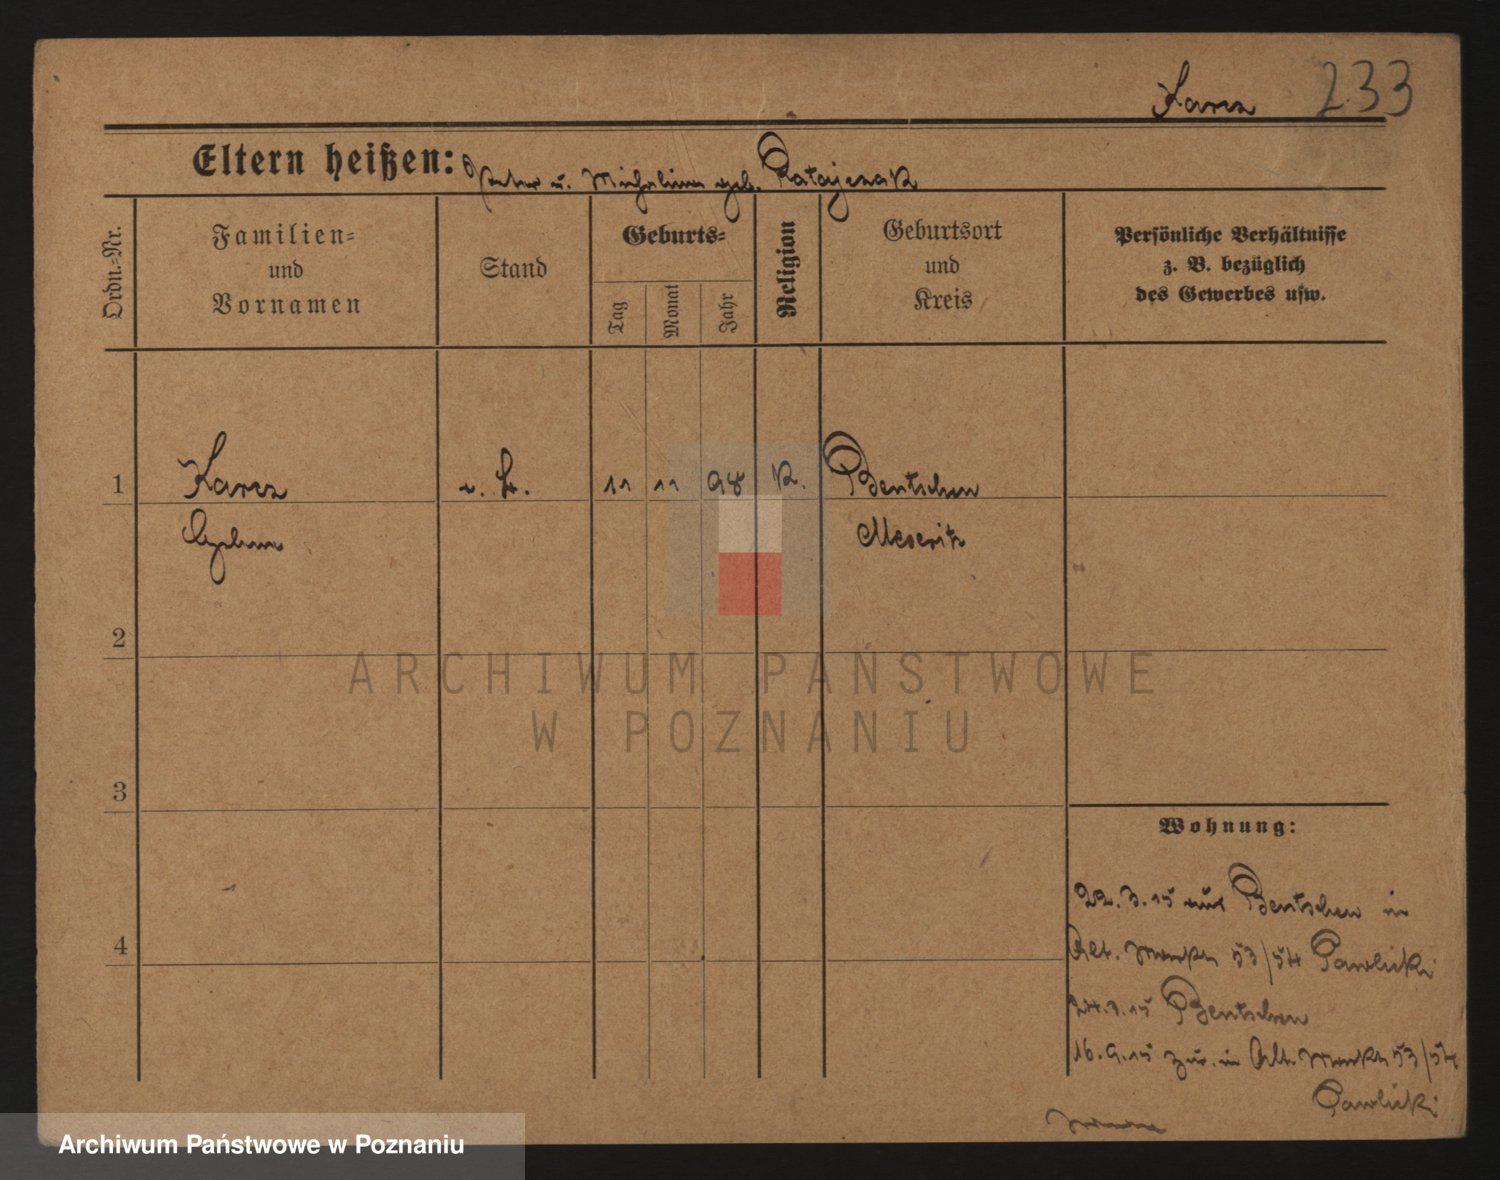 Karcz 233
Eltern heißen: Peter u. Michalina geb. Ratajczak
Ordn.-Nr.
Familien-
und
Vornamen
Stand
Geburts-
Tag
Monat
Jahr
Religion
Geburtsort
und
Kreis
Persönliche Verhältnisse
z. B. bezüglich
des Gewerbes usw.
1 Karcz 11 11 98 K. Bentschen
Meseritz
2
3
4
Wohnung:
22.3.15 aus Bentschen in
Alt. Markt 53/54 Pawlicki
24.3.15 Bentschen
16.9.15 zur. in Alt. Markt 53/54
Pawlicki
ARCHIWUM PAŃSTWOWE
W POZNANIU
Archiwum Państwowe w Poznaniu